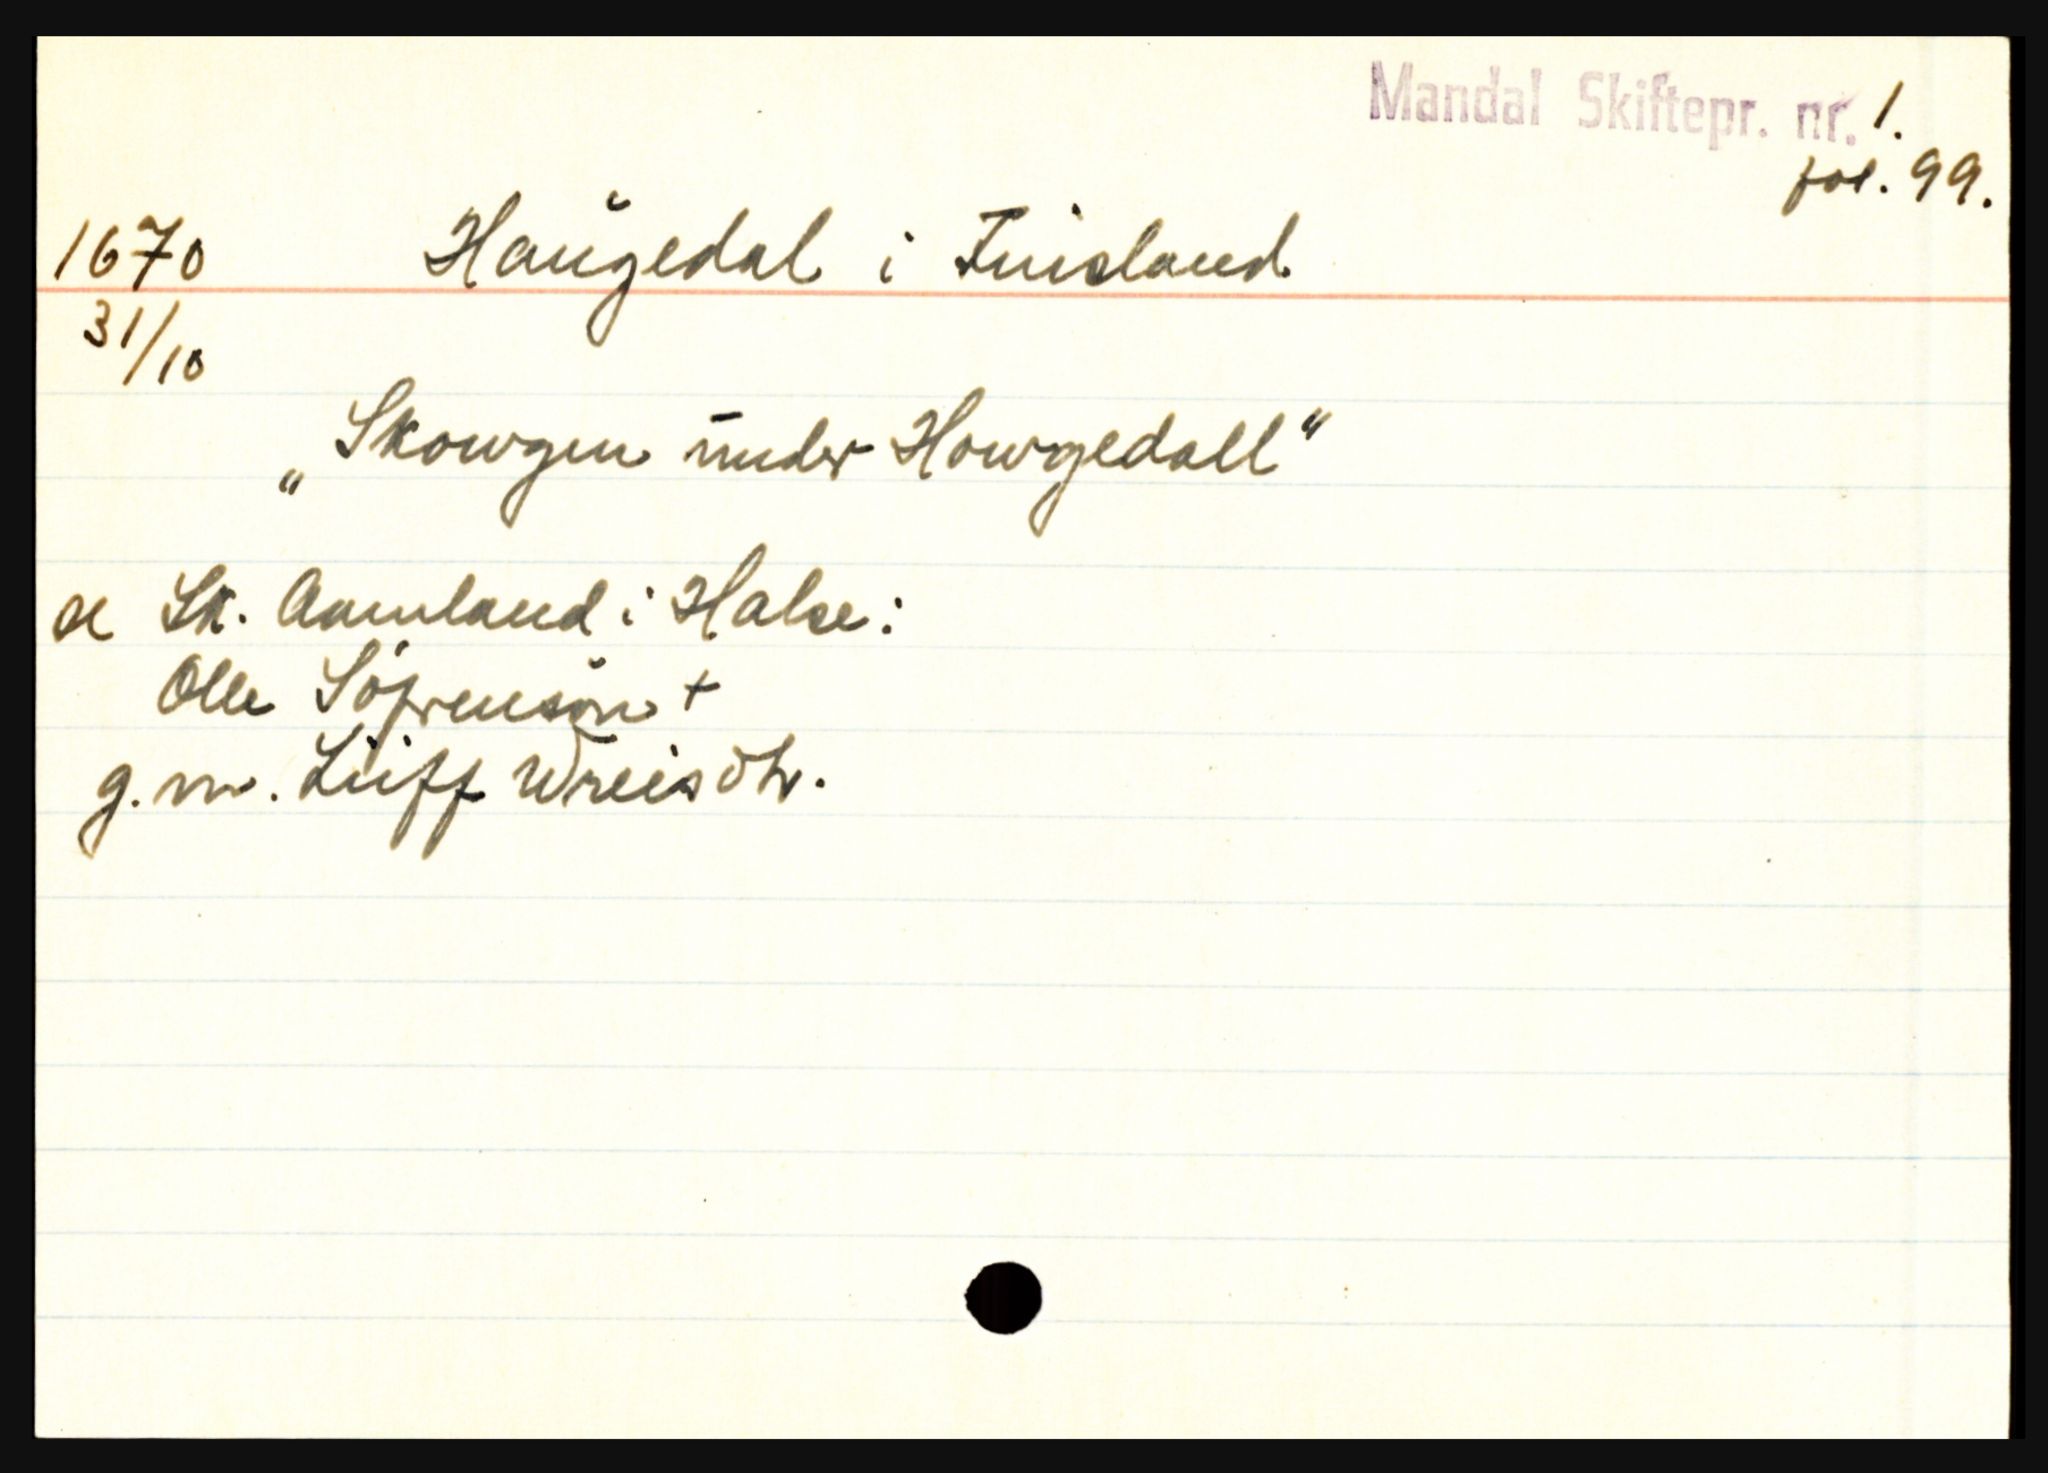 Mandal Skiftepr. nr. 1.
fol. 99.
1670 Haugedal i Finsland
31/10
„Skowgen under Howgedall“
se Sk. Aamland i Halse:
Olle Söfrensøn +
g. m. Liiff Wreisdtr.